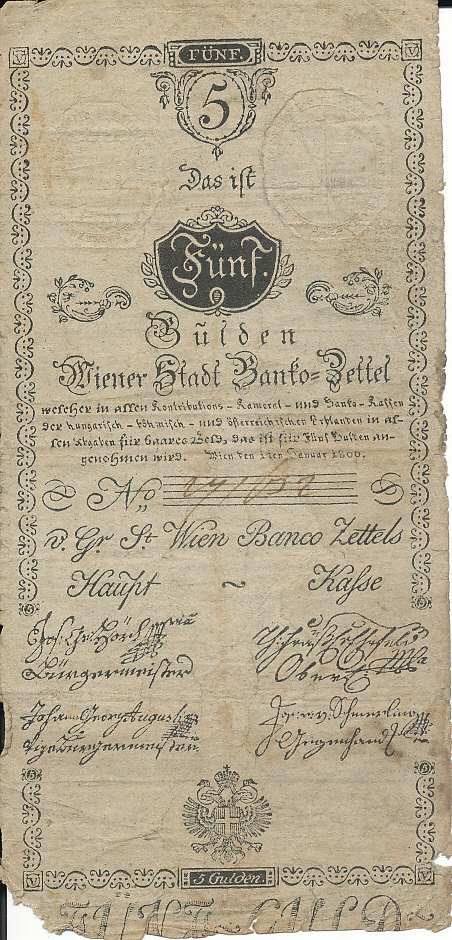 FÜNF.
V V
5
Das ist
Fünf.
Gulden
Wiener Stadt Banko=Zettel
welcher in allen Kontributions- Kameral- und Banko-Kassen
der hungarisch- böhmisch- und österreichischen Erblanden in al-
len Abgaben für baares Geld, das ist für Fünf Gulden an-
genohmen wird. Wien den 1ten Januar 1800.
No
v. Gr. St. Wien Banco Zettels
Haupt ~ Kasse
Bürgermeister Ober
Johann Georg August
Gegenhand
V V
5 Gulden.